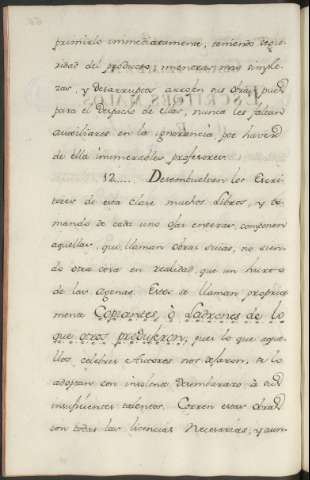 primirlo immediatamente, teniendo segu-
ridad del producto; mientras mas simple-
zas, y desatinos arrojen sus obras, pues
para el Despacho de ellas, nunca les faltan
auxiliares en la ignorancia, por haver
de ella innumerables profesores.
12..... Desembuelven los Escri-
tores de esta clase muchos Libros, y to-
mando de cada uno componen
aquellas, que llaman obras suias, no sien-
do otra cosa en realidad, que un hurto
de las agenas. Estos se llaman propria-
mente Copiantes, ò Ladrones de lo
que otros produxeron, pues lo que aque-
llos celebres Autores nos dexaron, se lo
adoptan con insolente desembarazo à sus
insuficientes talentos. Corren estas obras
con todas las licencias necesarias, y aun-